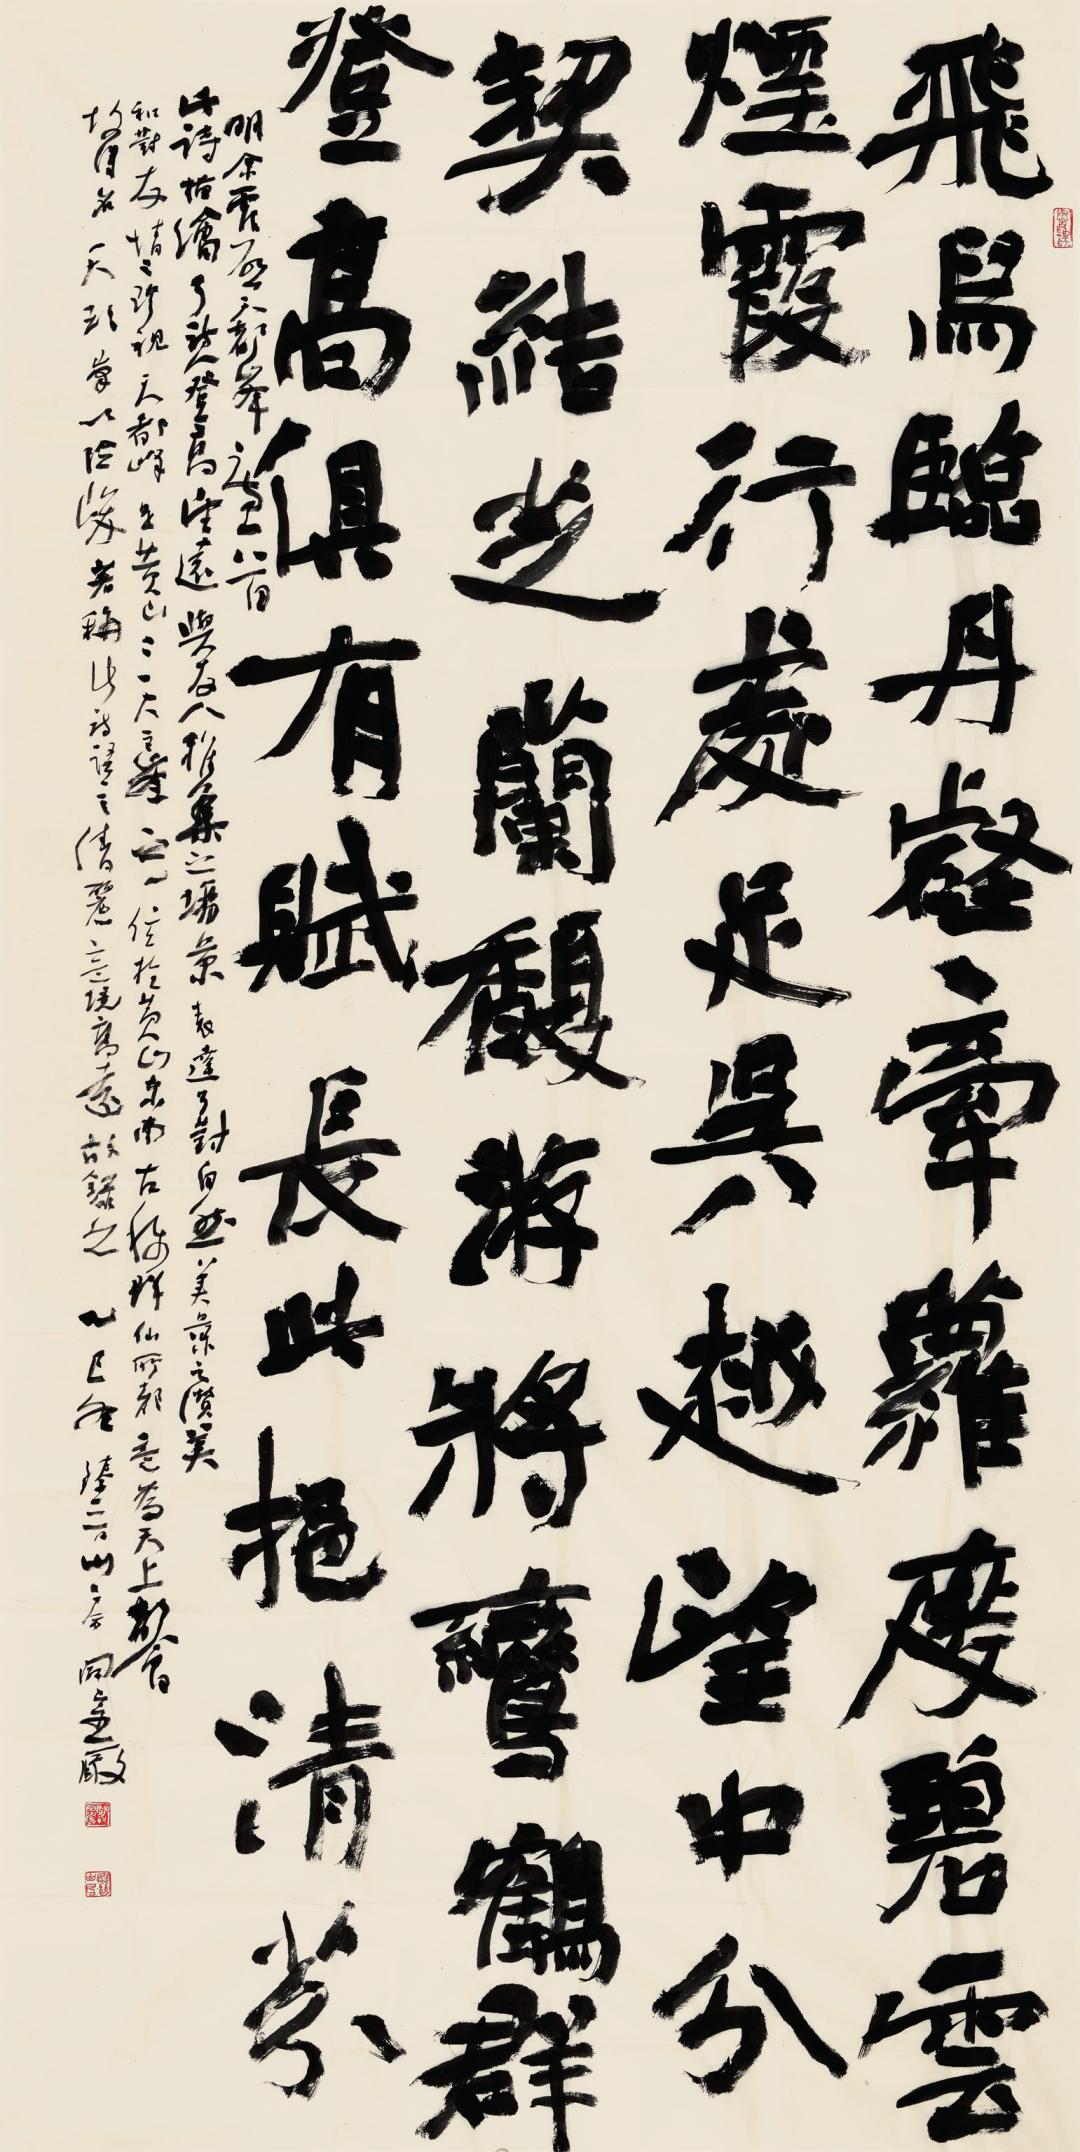 飛舄臨丹壑牽蘿度碧雲
煙霞行處足吳越望中分
契結芝蘭馥游將鸞鶴群
登高俱有賦長此挹清芬
明余震啟天都峯
此詩描繪了詩人登高望遠與友人雅集之場景表達了對自然美景之讚美
和對友情之珍視天都峰是黃山三大主峯之一位於黃山東南古稱群仙所都意為天上都會
故有名天都峯以險峻著稱此詩語言清麗意境高遠故錄之乙巳冬臻三山房